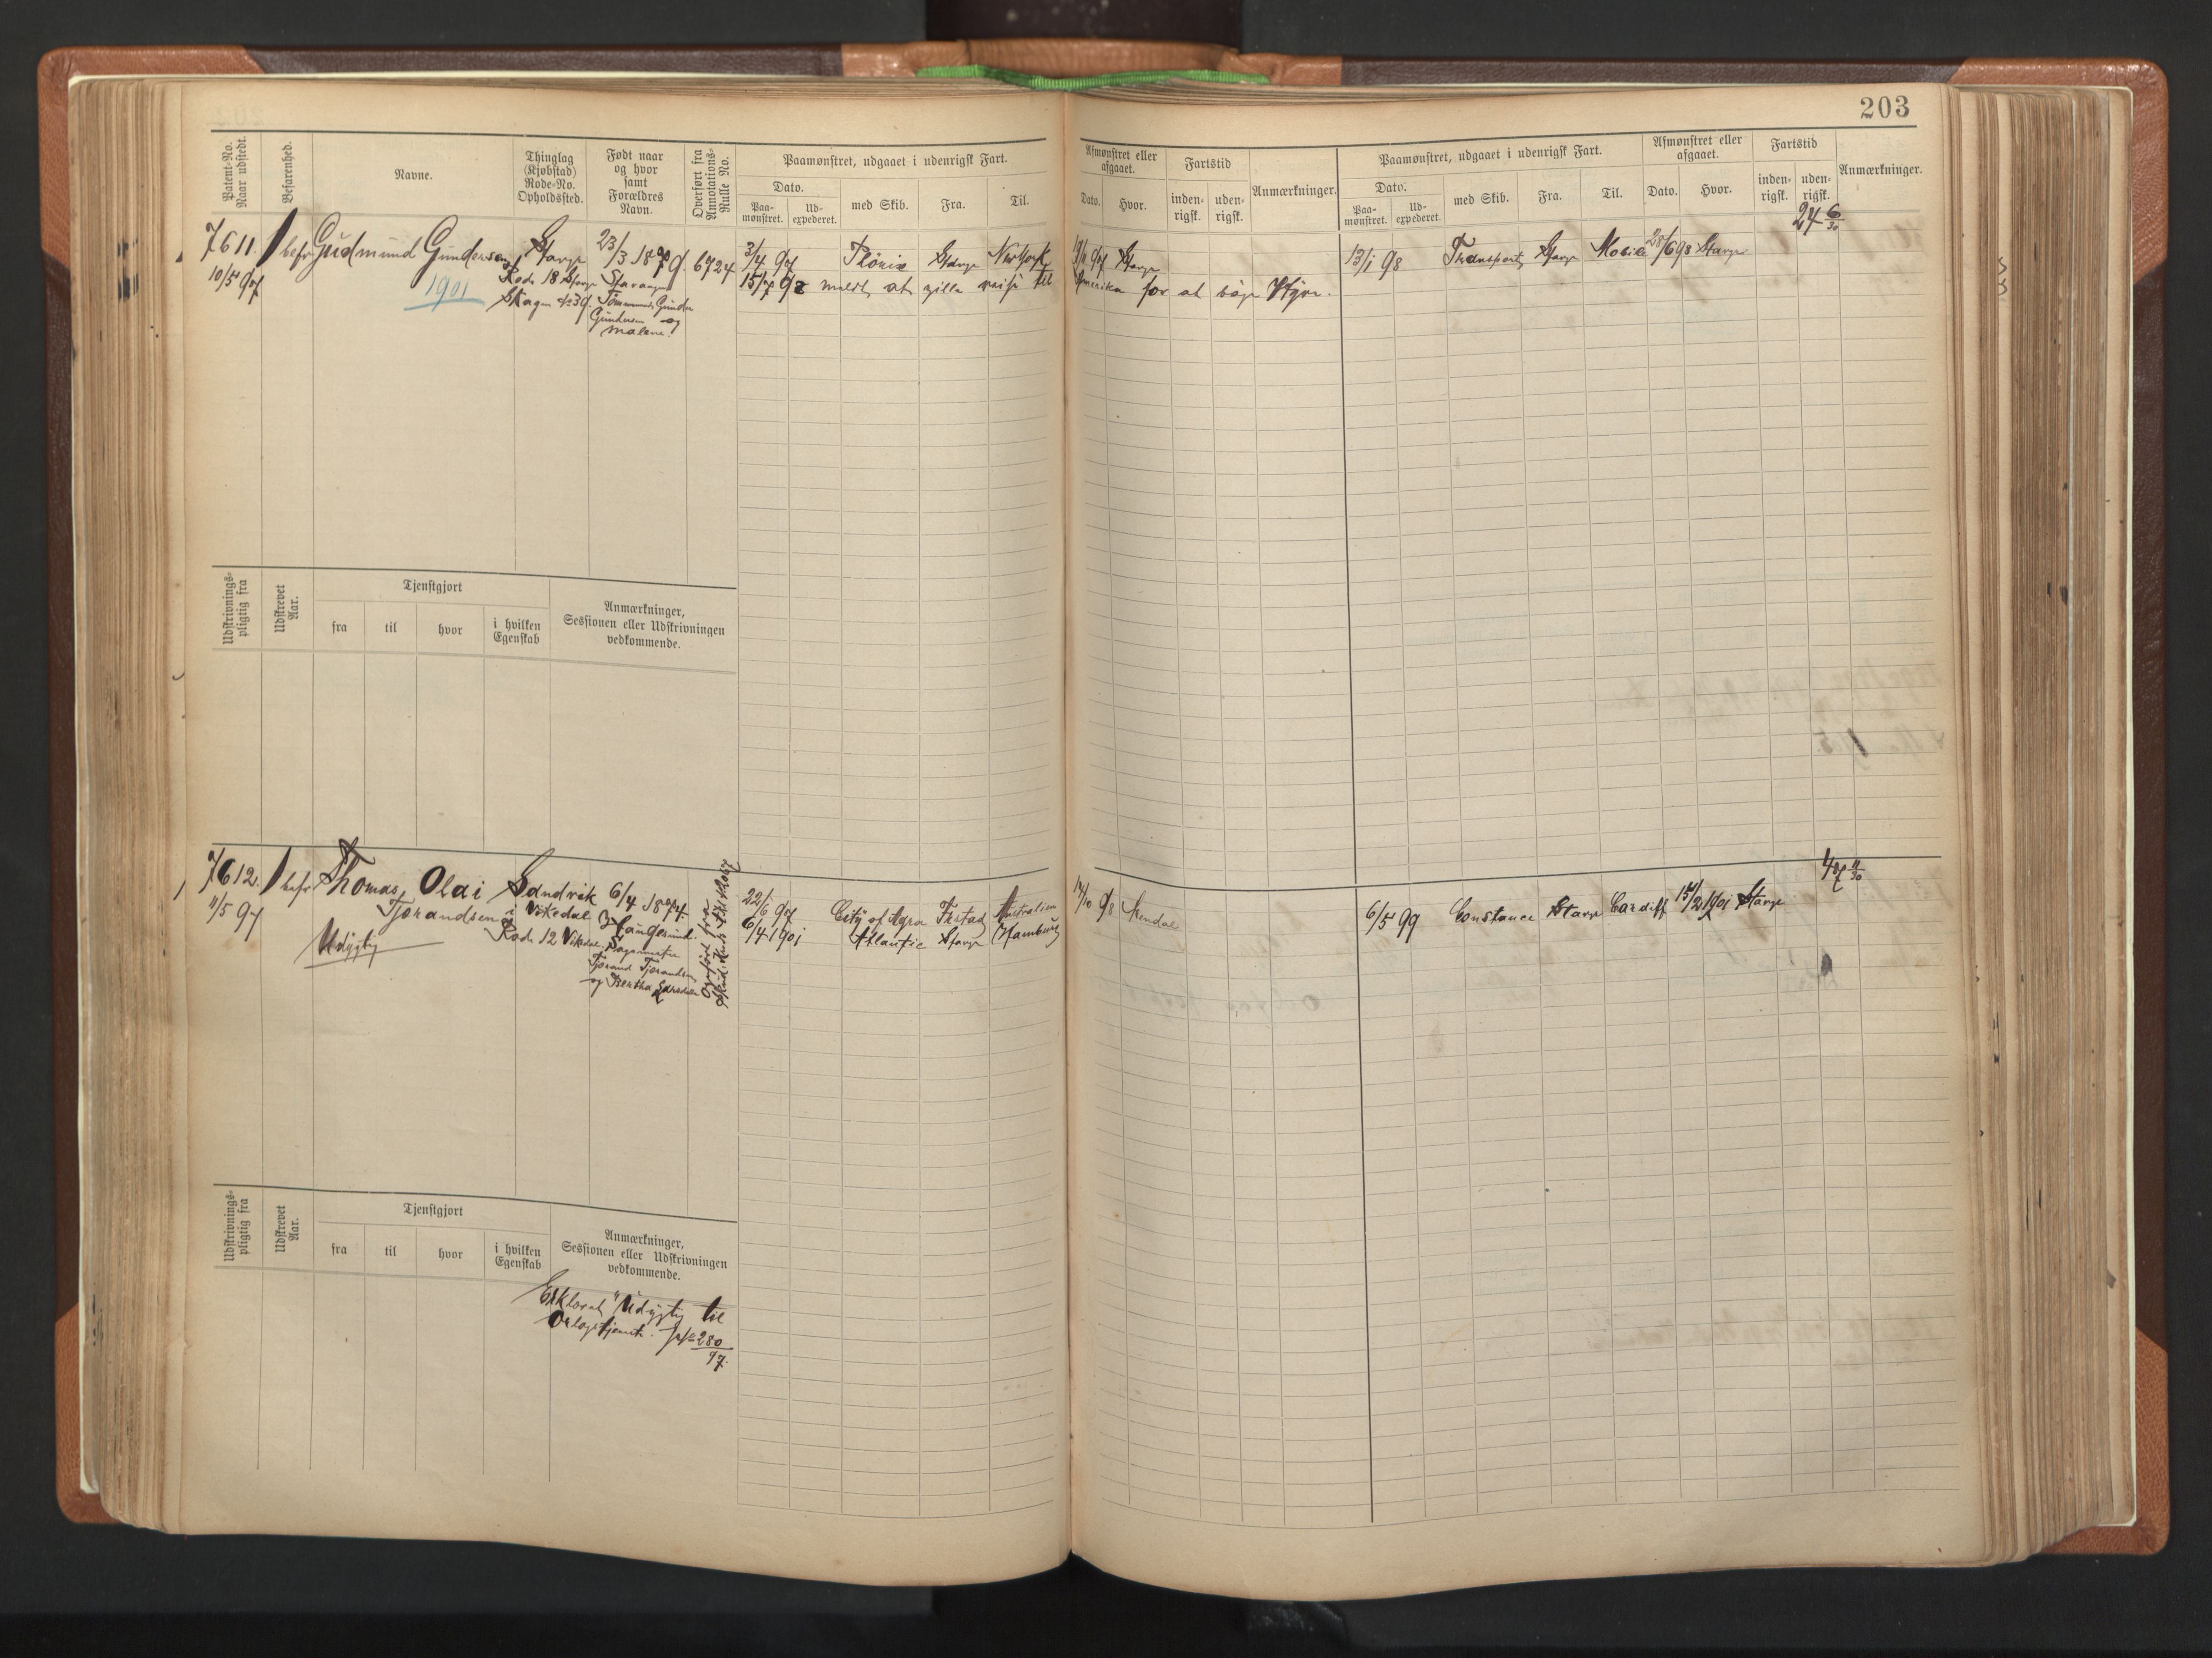 203
Patent-No. Naar udstedt.
Befarenhed.
Navne.
Thinglag (Kjøbstad) Rode-No. Opholdssted.
Født naar og hvor samt Forældres Navn.
Overført fra Annotations-Rulle No.
Paamønstret, udgaaet i udenrigsk Fart.
Dato.
Paa-mønstret.
Ud-expederet.
med Skib.
Fra.
Til.
Afmønstret eller afgaaet.
Dato.
Hvor.
Fartstid
inden-rigsk.
uden-rigsk.
Anmærkninger.
Paamønstret, udgaaet i udenrigsk Fart.
Dato.
Paa-mønstret.
Ud-expederet.
med Skib.
Fra.
Til.
Afmønstret eller afgaaet.
Dato.
Hvor.
Fartstid
inden-rigsk.
uden-rigsk.
Anmærkninger.
24 6/30
7611. befr Gudmund Gundersen Stavgr 23/3 1879. 6724 3/4 97 Phönix Stavgr New York
10/5 97
1901
Rode 18 Stavgr
Skagen 39.
Stavanger
Tømmermd Gunder
Gundersen og
Malene.
15/7 98 meldt at ville reise til Amerika for at søge Hyre.
Stavgr
13/1 98 Transport Stavgr Mobile 28/6 98 Stavgr
Udskrivnings-pligtig fra
Udskrevet Aar.
Tjenstgjort
fra
til
hvor
i hvilken Egenskab
Anmærkninger, Sessionen eller Udskrivningen vedkommende.
7612. befr Thomas Olai Sandvik 6/4 1874.
11/5 97
Tjørandsen i Vikedal
Rode 12 Vikedal
Udygtig
Tjørand Tjørandsen
og Bertha Larsdatter
Overført fra
22/6 97 City of Agra Fristad Australien
6/4 1901 Atlantic Stavgr Hamburg
6/5 99 Constance Stavgr Cardiff 15/2 1901 Stavgr
Udskrivnings-pligtig fra
Udskrevet Aar.
Tjenstgjort
fra
til
hvor
i hvilken Egenskab
Anmærkninger, Sessionen eller Udskrivningen vedkommende.
Erklæret "Udygtig til
Orlogstjeneste. 280/97.